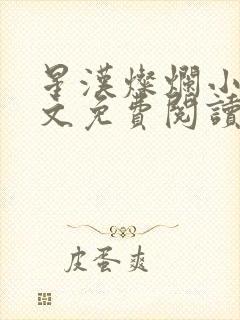 星漢燦爛小
文免費閱讀
皮蛋爽